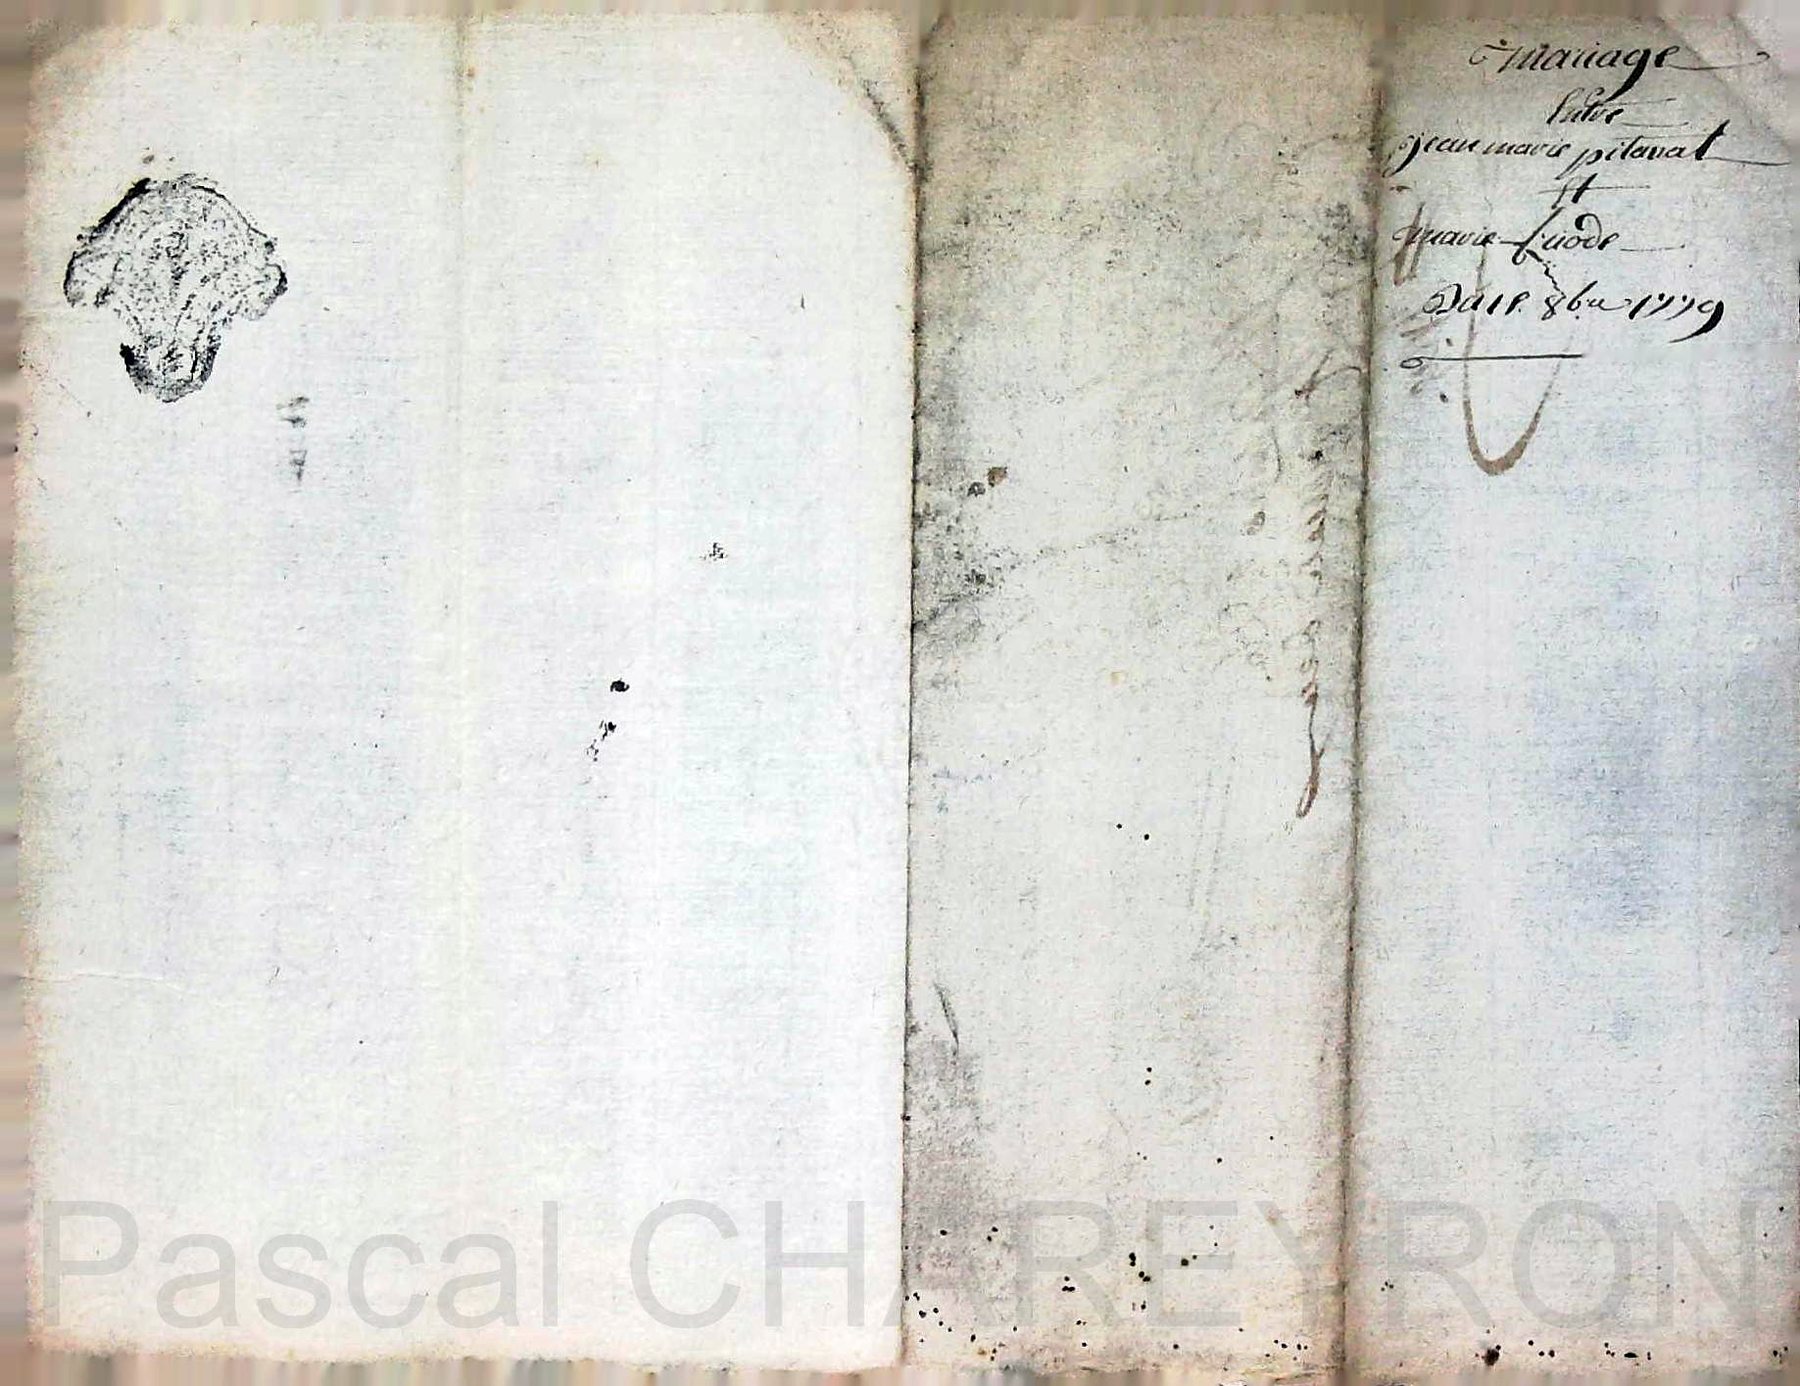 Mariage
Entre
jean marie pitaval
Et
marie
Du 1er. 8bre 1779
Pascal CHAREYRON